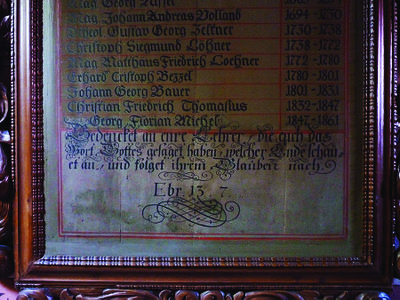 Mag Georg
Mag Johann Andreas Volland 1694-
Gustav Georg Zeltner 1730-1738
Christoph Siegmund Löhner 1738-1772
Mag Matthäus Friedrich Lochner 1772-1780
Erhard Cristoph Bezzel 1780-1801
Johann Georg Bauer 1801-1831
Christian Friedrich Thomasius 1832-1847
Georg Florian Michel 1847-1861
Gedencket an eure Lehrer, die euch das
Wort Gottes gesaget haben, welcher Ende schau-
et an, und folget ihrem Glauben nach.
Ebr 13, 7